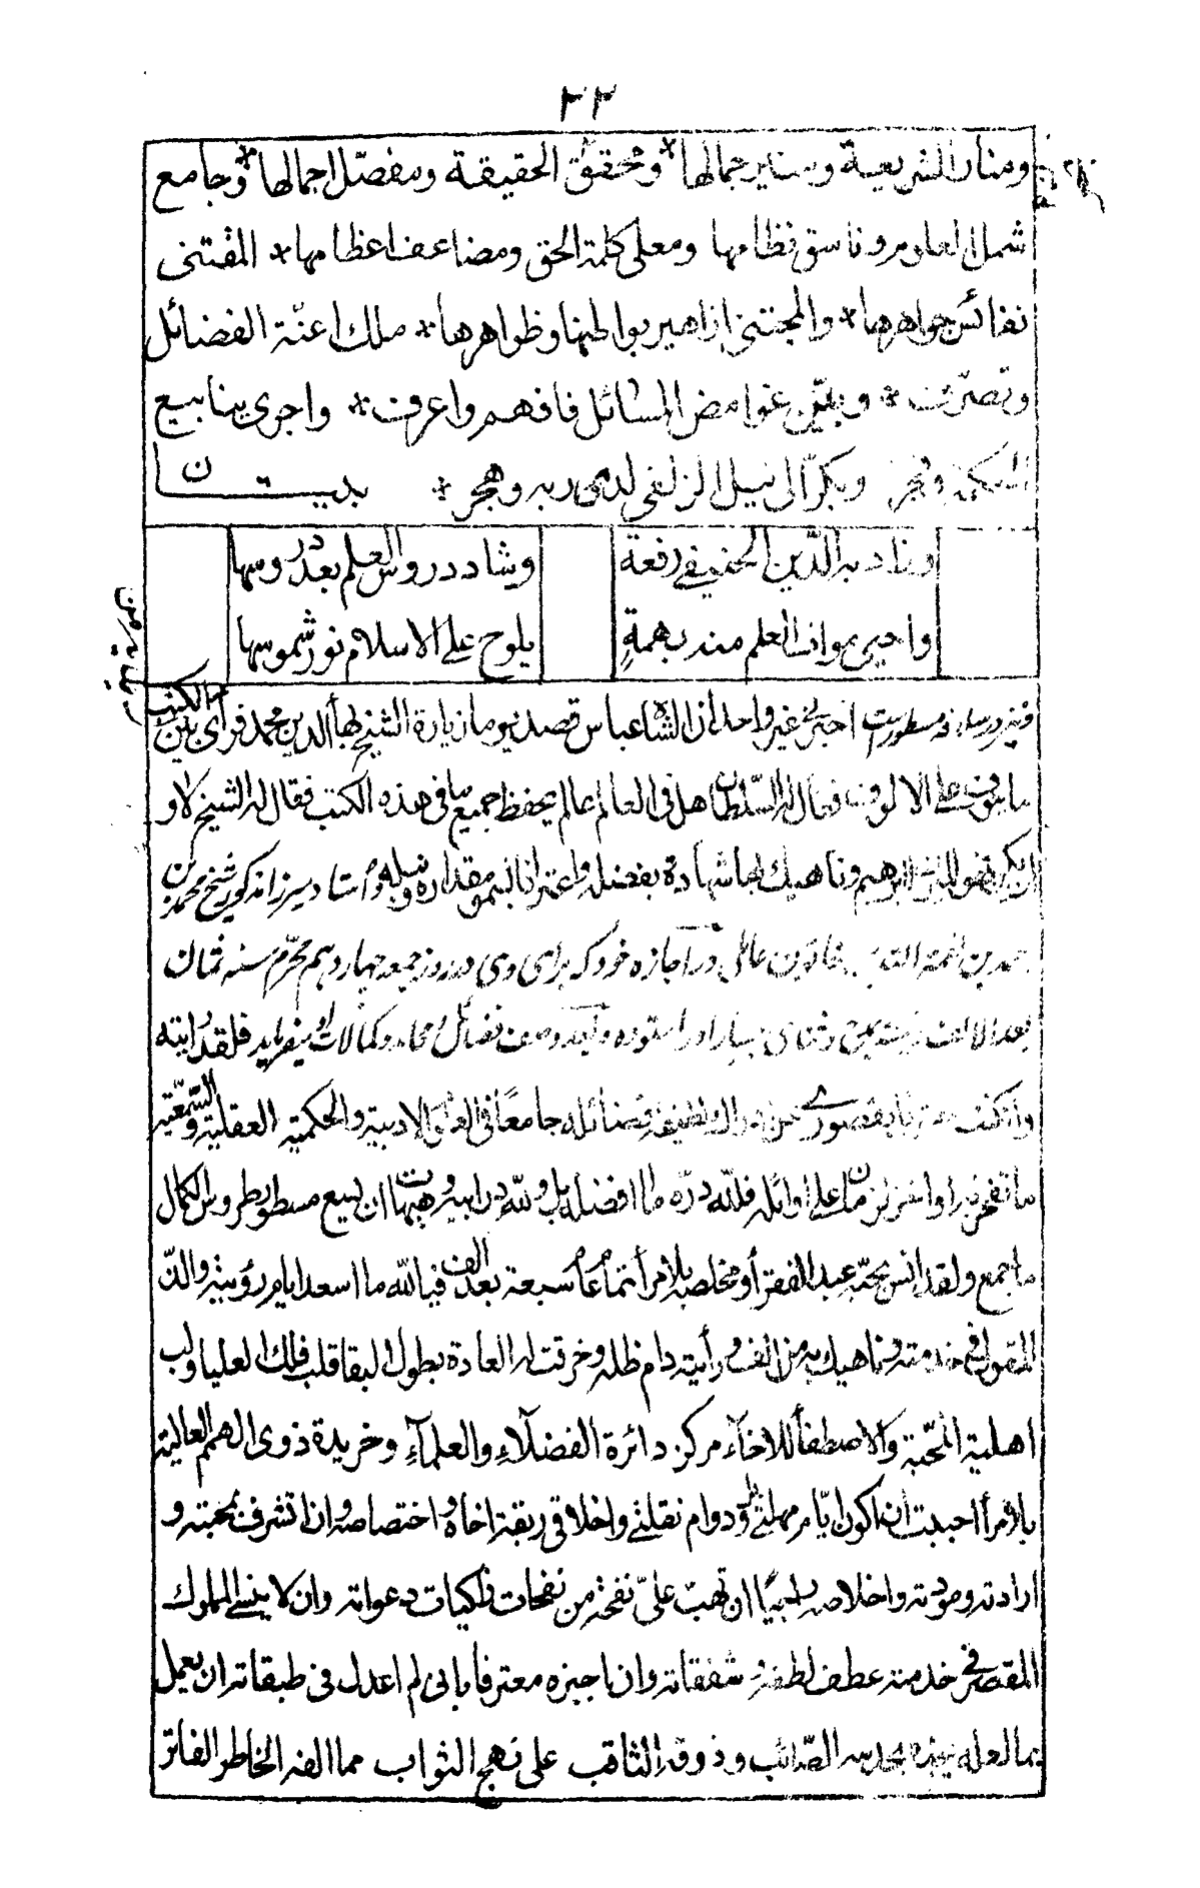 ٢٣
ومنار الشريعة وستير جمالها * ومحقق الحقيقة ومفصّل اجمالها * وجامع
شمل العلوم وناسق نظامها ومعلى كلمة الحق ومضاعف اعظامها * المقتنى
نفائس جواهرها * والمجتنى ازاهير بواطنها وظواهرها * ملك اعنّة الفضائل
وتصرّف * وبيّن غوامض المسائل فافهم واعرف * واجرى ينابيع
الحكمة وفجر وبكرّ الى نيل الزلفى لدى ربه وهجر * بيتان
وزاد به الدّين الحنيفى رفعة وشاد دروس العلم بعد دروسها
واحيى موات العلم منه بهمةٍ يلوح على الاسلام نور شموسها
ونيز در مسطورست اخبرنى غير واحد ان الشاه عباس قصد يوما زيارة الشيخ بهاء الدين محمد فراى بين الكتب
ما ينوف على الالوف فقال له السّلطان هل فى العالم عالم يحفظ جميع ما فى هذه الكتب فقال له الشيخ لا و
ان يكن فهو الميرزا ابرهيم وناهيك بها شهادة بفضله واعترافا بسمو مقداره ونبله واستاد ميرزا مذكور شيخ محمد بن
احمد بن نعمة الله بن خاتون عاملى در اجازه خود كه براى وى در روز جمعه چهاردهم محرّم سنه ثمان
بعد الالف بسيار او را ستوده و بعد وصف فضائل و محامد و كمالات او ميفرمايد فلقد رايته
وان كنت بقصورى عن ادراك فضائله جامعًا فى الادبية والحكمية العقلية والسّمعيّة
ما تفخر به اواخر من على اوائله فللّه درّه ما افضله بل وللّه در ابيه وهيهات ان يسع مسطور طروس الكمال
ما جمع ولقد انس بمحبّه عبد الفقراء ومخلصه بلا مراء تمام عام سبعة بعد الالف فيا للّه ما اسعد ايام رؤيته والذّ
المثول فى خدمته وناهيك به من الف ورأيته دام ظله وخرقت له العادة بطول البقا قلب فلك العليا ولب
اهلية المحّبة والاصطفاء للاخآء مركز دائرة الفضلآء والعلمآء وخريدة ذوى الهمم العالية
بلا مراء احببت ان اكون ايّام مهلتى ودوام نقلتى واخلاقى ربقة اخاه واختصاصه وان اتشرف بمحبته و
ارادته ومودته واخلاصه راجيًا ان تهب علىّ نفحة من نفحات زكيات دعواته وان لا ينسى المملوك
المقصر فى خدمته عطف لطفه وشفقاته وان اجيزه معترفا بانى لم اعدل فى طبقاته ان يعمل
بما لعله يجده بحدسه الصّائب وذوقه الثاقب على نهج الثواب مما الفه الخاطر الفاتر